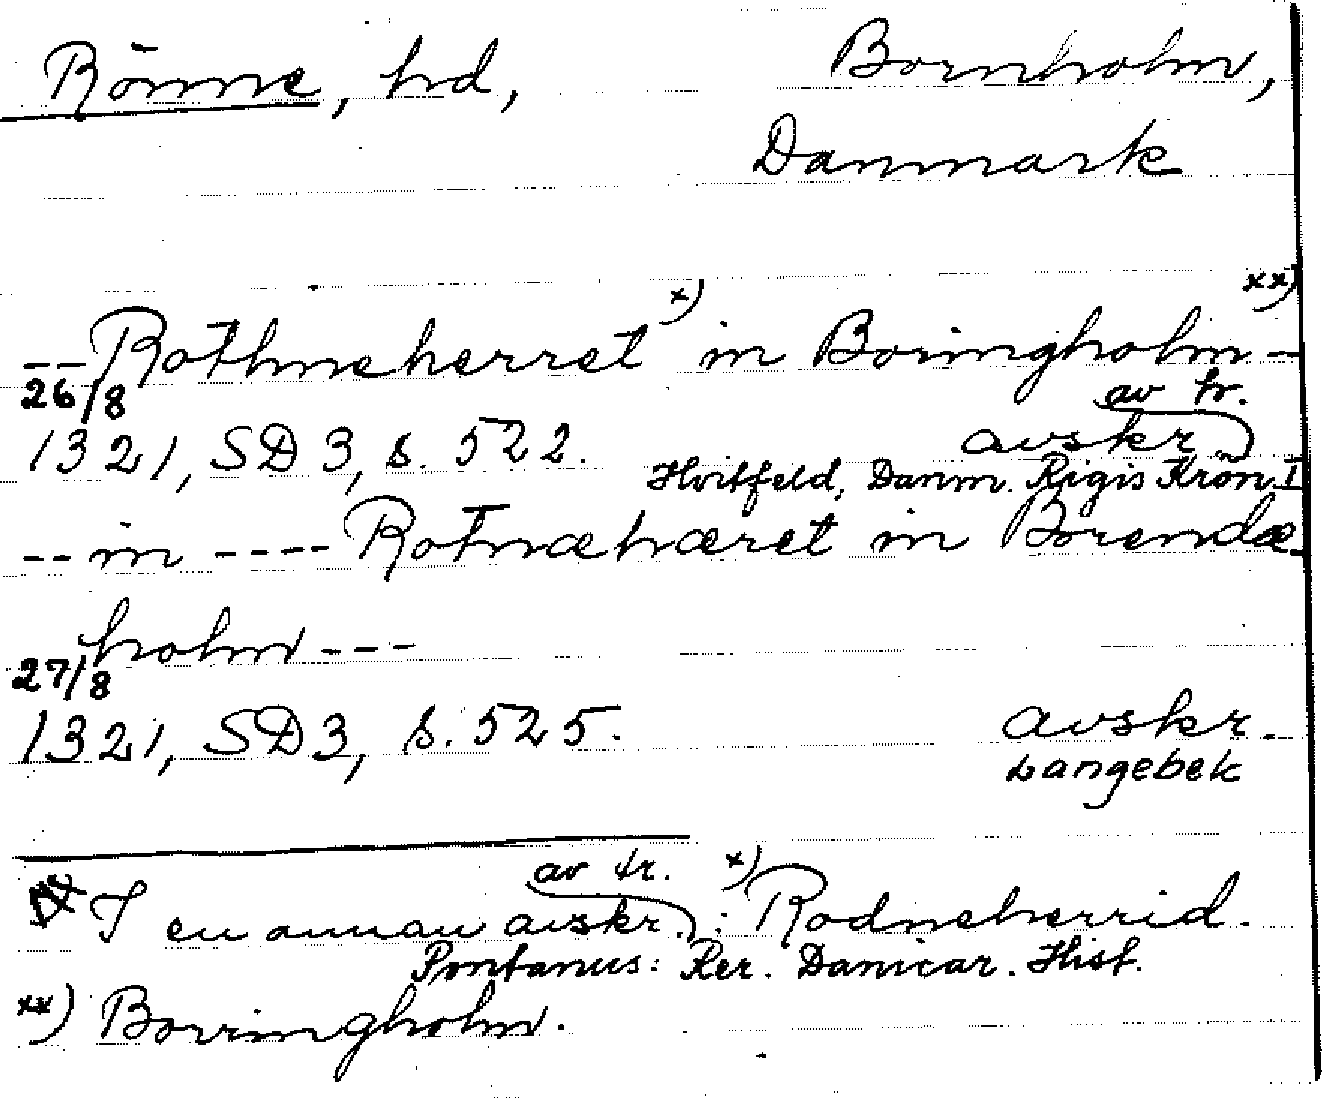 Rönne, hd, Bornholm,
Danmark
--Rothneherret x) in Boringholm-- xx)
26/8 av tr.
1321, SD 3, s. 522. avskr.
Hvitfeld, Danm. Rigis Krön. I
--in ----Rotnæhæret in Borendæ-
holm ---
27/8
1321, SD3, s. 525. avskr.
Langebek
av tr.
I en annan avskr.: x) Rodneherrid.
Pontanus: Rer. Danicar. Hist.
xx) Bovringholm.